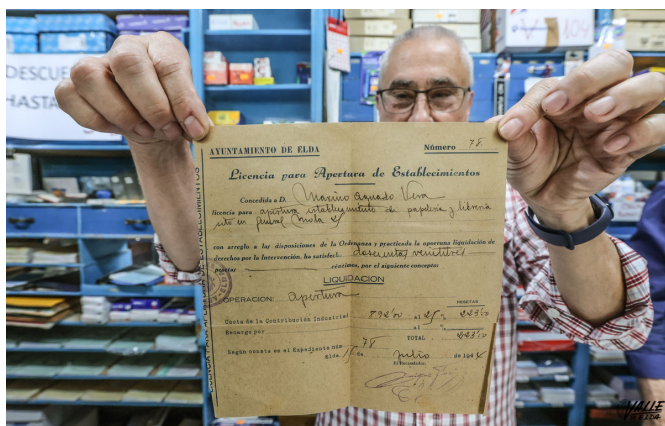 DESCUE
HASTA
104
AYUNTAMIENTO DE ELDA
Número 78
Licencia para Apertura de Establecimientos
Concedida a D. Marino Aguado Vera
licencia para apertura establecimiento de papelería y librería
sito en General Mola
con arreglo a las disposiciones de la Ordenanza y practicada la oportuna liquidación de
derechos por la Intervención, ha satisfecho doscientas veintitres
pesetas céntimos, por el siguiente concepto:
LIQUIDACION
OPERACION: Apertura
PESETAS
Cuota de la Contribución Industrial 892'00 al 25 % 223'00
Recargo por al %
TOTAL 223'00
Según consta en el Expediente núm. 78
Elda de Julio de 194
El Recaudador,
VALLE
DE ELDA